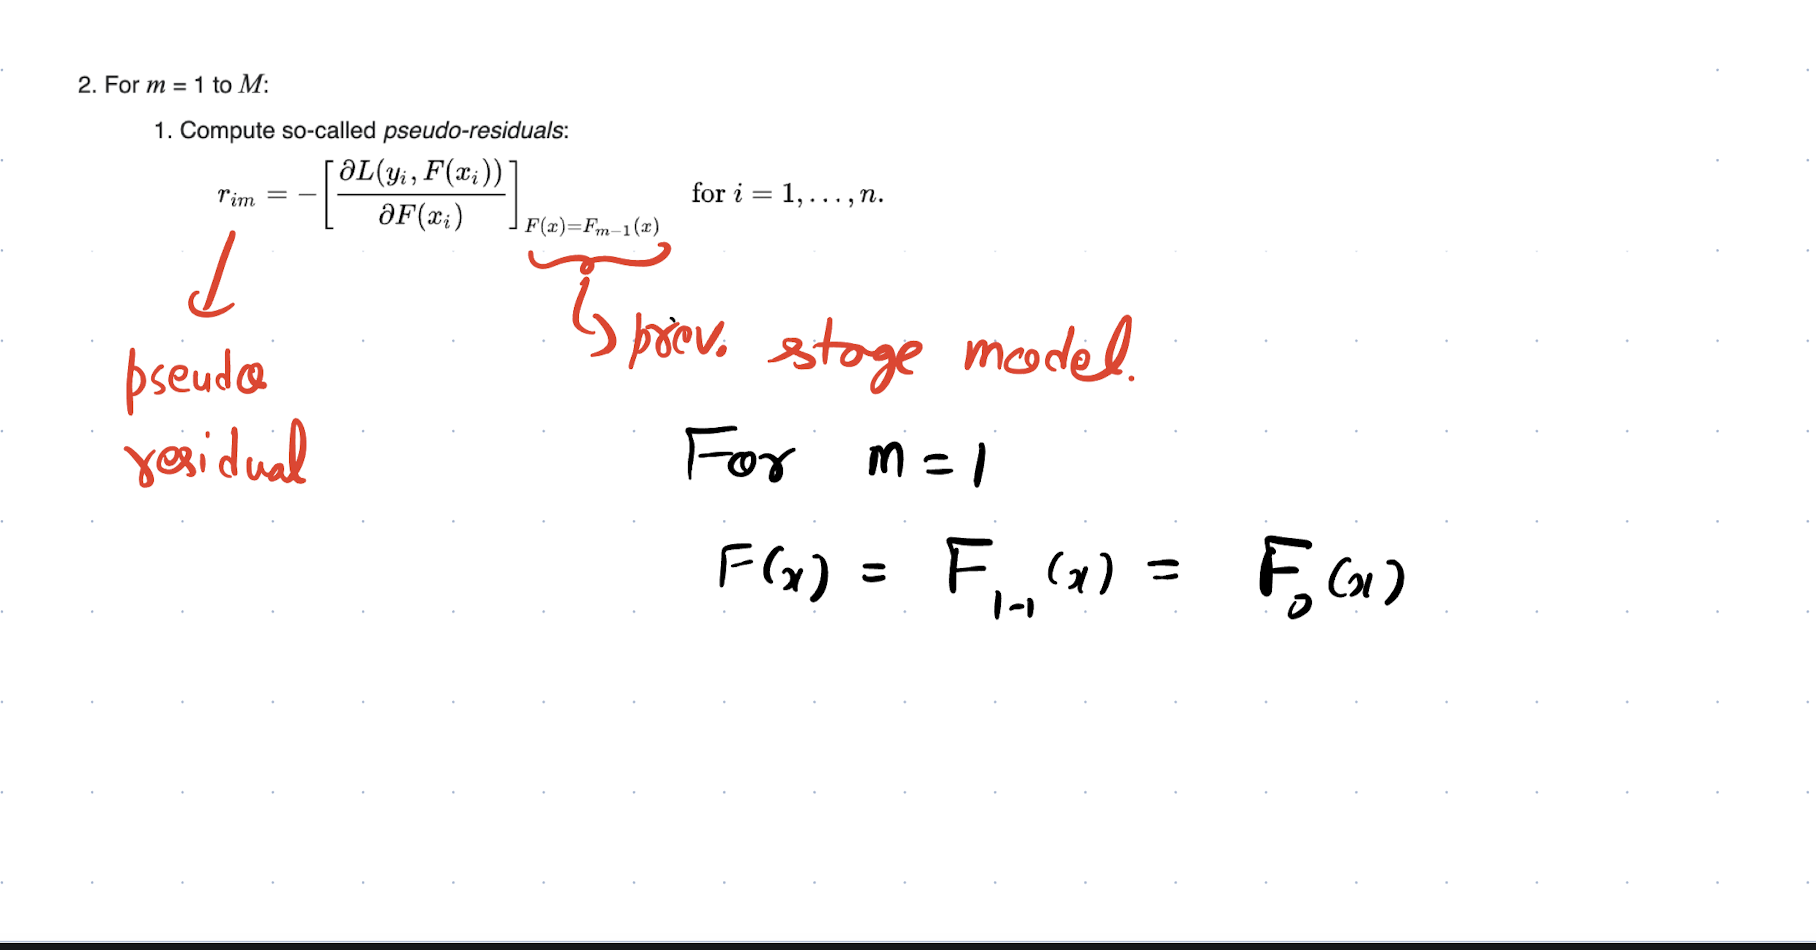 2. For m = 1 to M:
1. Compute so-called pseudo-residuals:
r_{im} = -[∂L(y_i, F(x_i)) / ∂F(x_i)]_{F(x)=F_{m-1}(x)} for i = 1, . . . , n.
prev. stage model.
pseudo
residual
For m = 1
F(x) = F_{1-1}(x) = F_0(x)